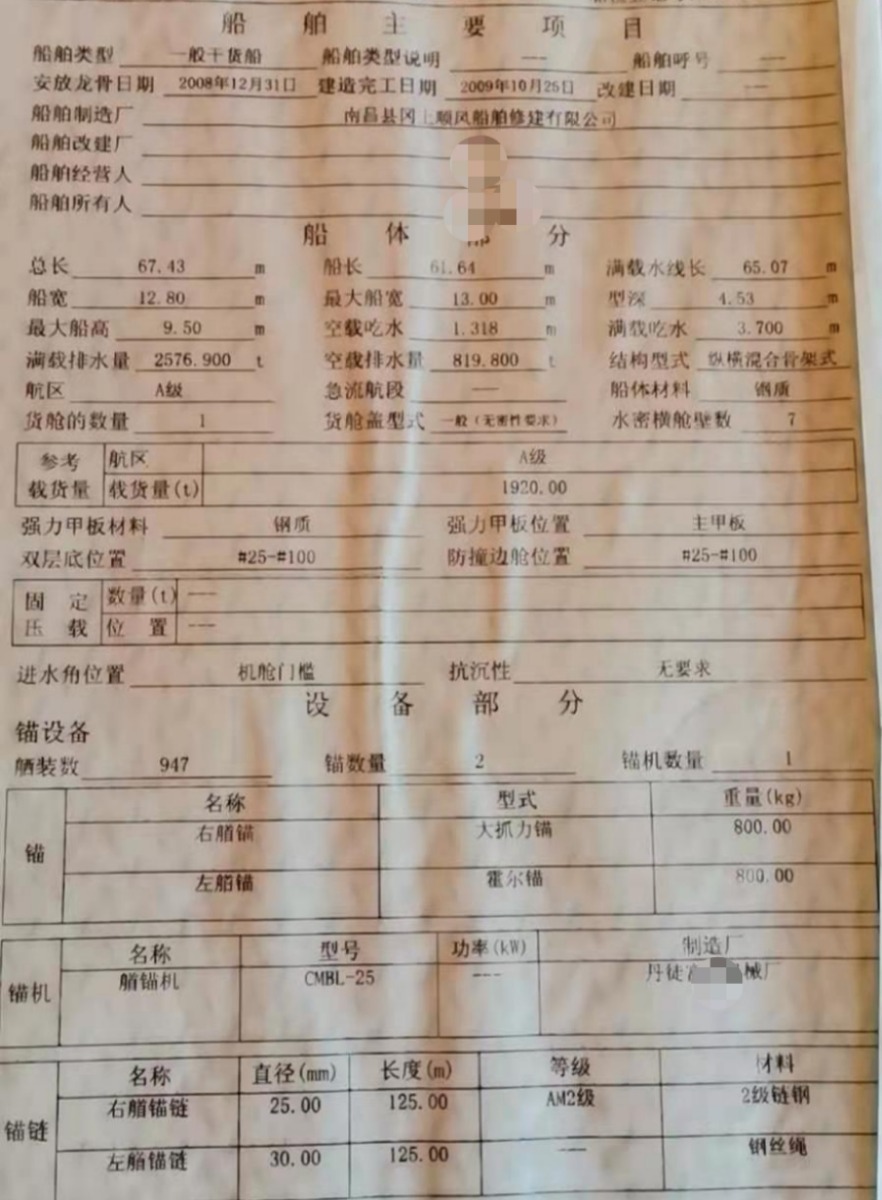 船舶主要项目
船舶类型 一般干货船 船舶类型说明 --- 船舶呼号 ---
安放龙骨日期 2008年12月31日 建造完工日期 2009年10月25日 改建日期 ---
船舶制造厂 南昌县冈上顺风船舶修建有限公司
船舶改建厂
船舶经营人
船舶所有人
船体部分
总长 67.43 m 船长 61.64 m 满载水线长 65.07 m
船宽 12.80 m 最大船宽 13.00 m 型深 4.53 m
最大船高 9.50 m 空载吃水 1.318 m 满载吃水 3.700 m
满载排水量 2576.900 t 空载排水量 819.800 t 结构型式 纵横混合骨架式
航区 A级 急流航段 --- 船体材料 钢质
货舱的数量 1 货舱盖型式 一般(无密性要求) 水密横舱壁数 7
参考 航区 A级
载货量 载货量(t) 1920.00
强力甲板材料 钢质 强力甲板位置 主甲板
双层底位置 #25-#100 防撞边舱位置 #25-#100
固定 数量(t) ---
压载 位置 ---
进水角位置 机舱门槛 抗沉性 无要求
设备部分
锚设备
舾装数 947 锚数量 2 锚机数量 1
名称 型式 重量(kg)
锚 右艏锚 大抓力锚 800.00
左艏锚 霍尔锚 800.00
名称 型号 功率(kW) 制造厂
锚机 艏锚机 CMBL-25 --- 丹徒 械厂
名称 直径(mm) 长度(m) 等级 材料
锚链 右艏锚链 25.00 125.00 AM2级 2级链钢
左艏锚链 30.00 125.00 --- 钢丝绳